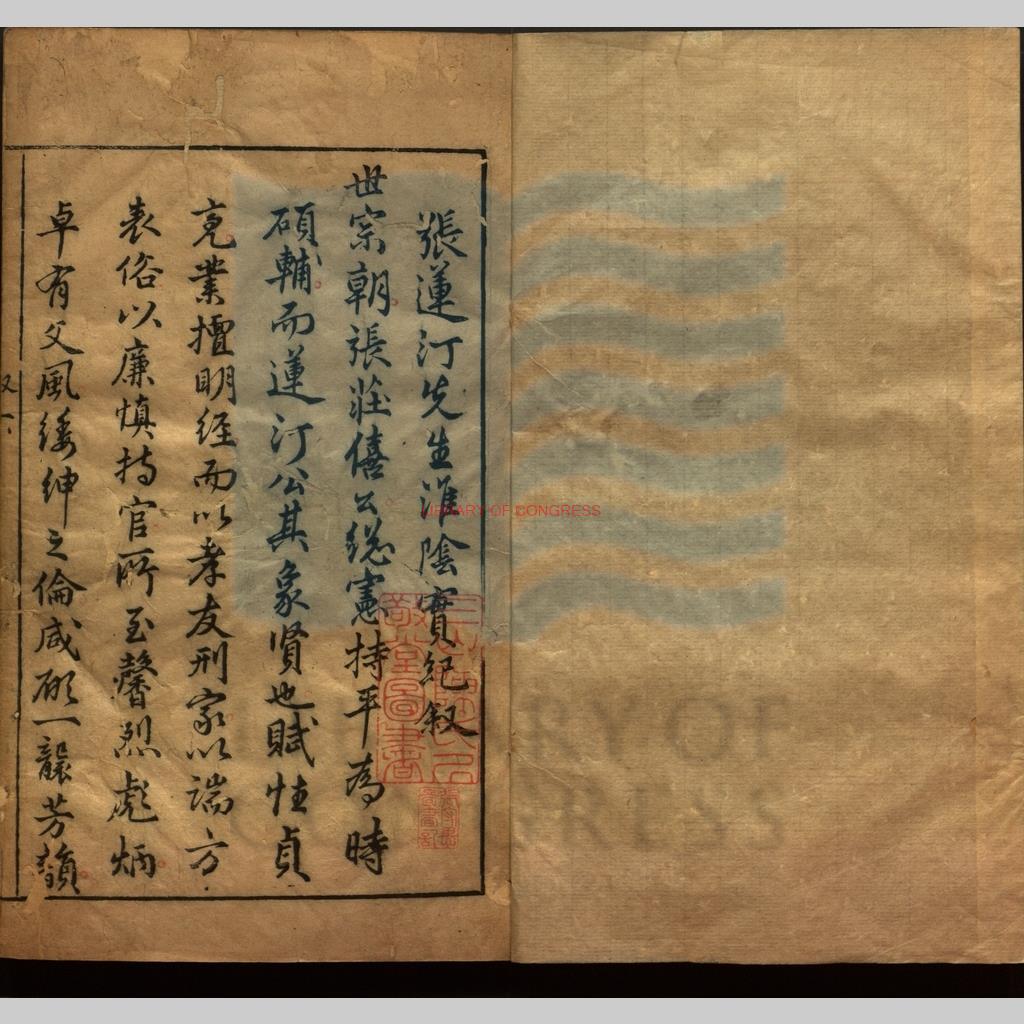 張蓮汀先生淮陰實紀叙
世宗朝張莊僖公總憲持平為時
碩輔而蓮汀公其象賢也賦性貞
亮業擅明經而以孝友刑家以端方
表俗以廉慎持官所至馨烈彪炳
卓有父風縉紳之倫咸願一襲芳韻
叙 一
LIBRARY OF CONGRESS